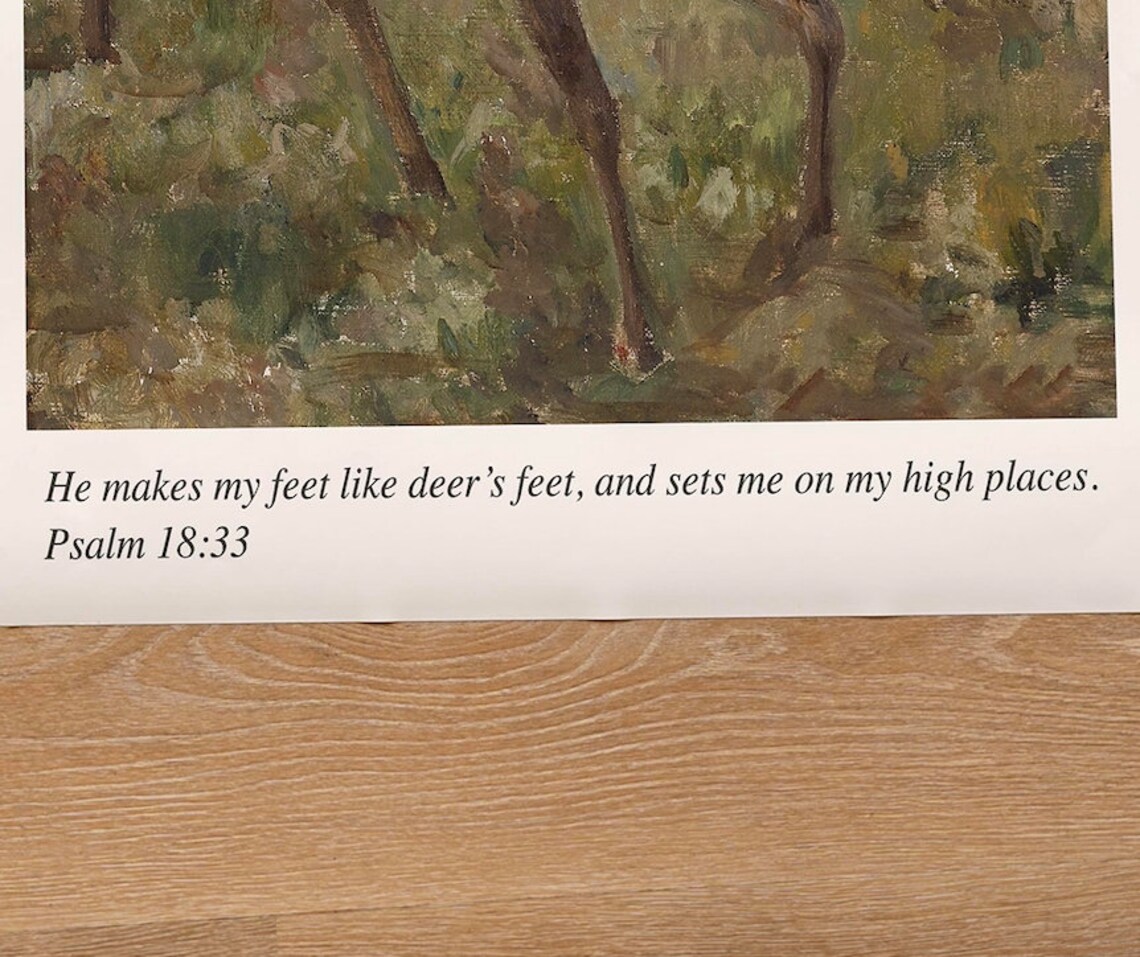 He makes my feet like deer’s feet, and sets me on my high places.
Psalm 18:33